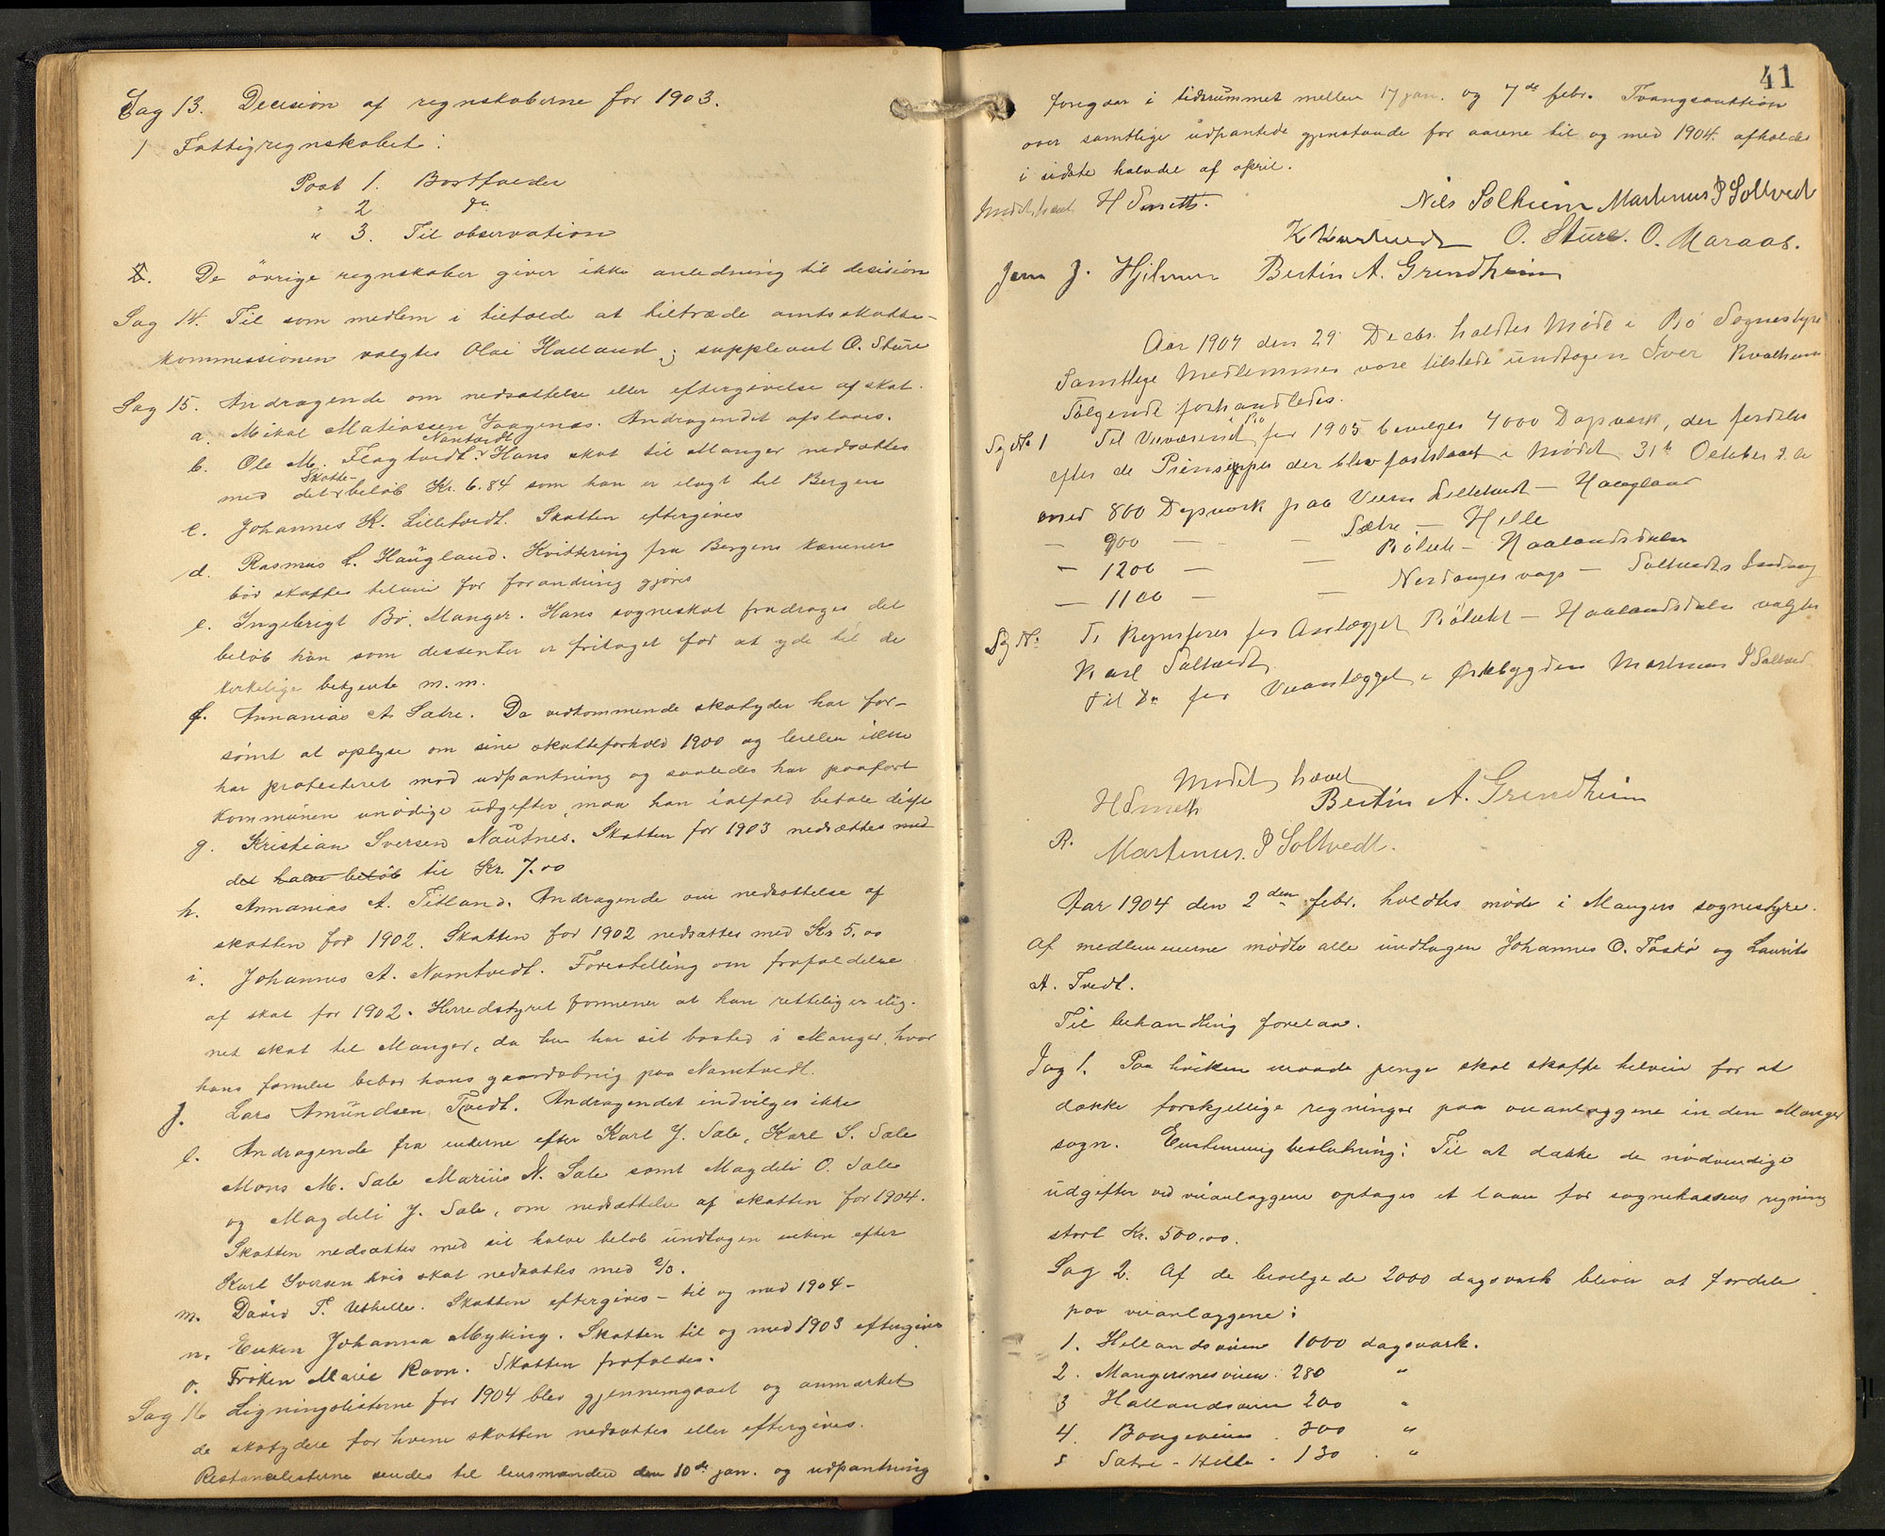 Sag 13. Decision af regnskaberne for 1903.
1 Fattigregnskabet:
Post 1. Bortfalder
" 2 do
" 3. Til observation
2. De øvrige regnskaber giver ikke anledning til decision
Sag 14. Til som medlem i tilfælde at tiltræde amtsskatte-
kommissionen valgtes Olai Halland; suppleant O. Sture
Sag 15. Andragende om nedsættelse eller eftergivelse af skat.
a. Mikal Matiassen Andragendet afslaaes.
b. Ole M. Hans skat til Manger nedsættes
med det skatte-beløb Kr. 6.84 som han er ilagt til Bergen
c. Johannes K. Lilletvedt. Skatten eftergives
d. Rasmus L. Haugland. Kvittering fra Bergens kæmner
bør skaffes tilveie før forandring gjøres
e. Ingebrigt Bø, Manger. Hans sogneskat fradrages det
beløb han som dissenter er fritaget for at yde til de
kirkelige betjente m.m.
f. Annanias A. Sætre. Da vedkommende skatyder har for-
sømt at oplyse om sine skatteforhold 1900 og heller ikke
har protesteret mod udpantning og saaledes har paaført
kommunen unødige udgifter, maa han ialfald betale disse
g. Kristian Iversen Nautnes. Skatten for 1903 nedsættes med
det halve beløb til Kr. 7.00
h. Annanias A. Titland. Andragende om nedsættelse af
skatten for 1902. Skatten for 1902 nedsættes med Kr 5.00
i. Johannes A. Namtvedt. Forestilling om frafaldelse
af skat for 1902. Herredstyret formener at han rettelig er ilig-
net skat til Manger, da han har sit bosted i Manger, hvor
hans familie bebor hans gaardsbrug paa Namtvedt.
j. Lars Amundsen Tvedt. Andragendet indvilges ikke
l. Andragende fra enkerne efter Karl J. Sale, Karl S. Sale
Mons M. Sale Marius N. Sale samt Magdeli O. Sale
og Magdeli J. Sale, om nedsættelse af skatten for 1904.
Skatten nedsættes med sit halve beløb undtagen enken efter
Karl Iversen hvis skat nedsættes med
m. David T. Skatten eftergives - til og med 1904 -
n. Enken Johanna Myking. Skatten til og med 1903 eftergives
o. Frøken Marie Ravn. Skatten frafaldes.
Sag 16 Ligningslisterne for 1904 blev gjennemgaaet og anmærket
de skatydere for hvem skatten nedsættes eller eftergives.
Restancelisterne sendes til lensmanden den 10de jan. og udpantning
41
foregaar i tidsrummet mellem 17 jan. og 7de febr. Tvangsauktion
over samtlige udpantede gjenstande for aarene til og med 1904. afholdes
i sidste halvdel af april.
Mødet hævet H Smith.
Nils Sælheim Martinus P Soltvedt
O. Sture. O. Maraas.
Jens J. Hjelmen Bertin A. Grendheim
Aar 1904 den 29 Decbr. holdtes Møde i Bø Sognestyre
Samtlige Medlemmer vare tilstede undtagen Iver Kvalheim
Følgende forhandledes.
Sag No 1 Til Veivæsenet i Bø for 1905 bevilges 4000 Dagsværk, der fordeles
efter de Prinsipper der blev fastslaaet i Mødet 31te October d. a
med 800 Dagsværk paa Veien Lilletvedt - Haugland
— 900 — — Sætre — Hille
— 1200 — — Bøleet - Haalandsdalen
— 1100 — — Nordangervaag -
Sag No. Ti Regnsfører for Anlægget Bøleet - Haalandsdalen valgtes
Karl Saltvedt
Til Do for Veianlægget i Østbygden Martinus P Soltvedt
Mødet hævet
H Smith Bertin A. Grendheim
R. Martinus P Soltvedt.
Aar 1904 den 2den febr. holdtes møde i Mangers sognestyre.
Af medlemmerne mødte alle undtagen Johannes O. Toskø og Laurits
A. Tvedt.
Til behandling forelaa.
Sag 1. Paa hvilken maade penge skal skaffes tilveie for at
dække forskjellige regninger paa veianlæggene inden Manger
sogn. Enstemmig beslutning: Til at dække de nødvendige
udgifter ved veianlæggene optages et laan for sognekassens regning
stort Kr. 500.00.
Sag 2. Af de bevilgede 2000 dagsværk bliver at fordele
paa veianlæggene:
1. Hellandsveien 1000 dagsværk.
2. Mangersnesveien: 280 "
3 Hallandsveien 200 "
4. Bougeveien . 300 "
5 Sætre - Hille . 130 . "